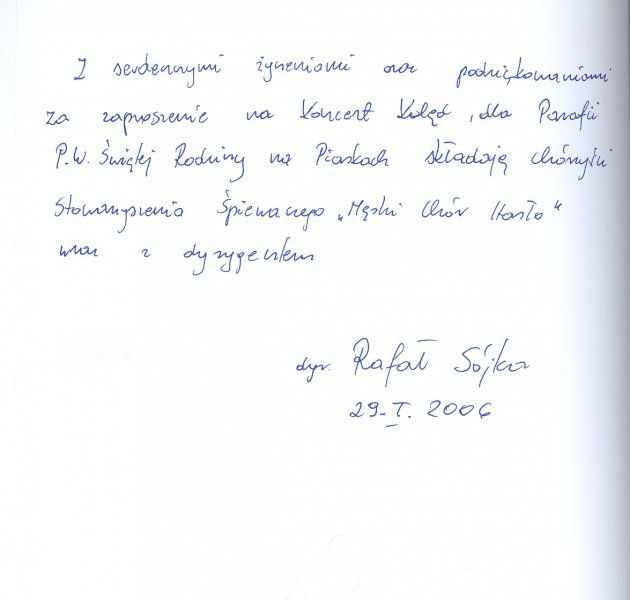 Z serdecznymi życzeniami oraz podziękowaniami
za zaproszenie na Koncert Kolęd, dla Parafii
P.W. Świętej Rodziny na Piaskach składają chórzyści
Stowarzyszenia Śpiewaczego „Męski Chór Hasło"
wraz z dyrygentem
dyr. Rafał Sójka
29-I. 2006